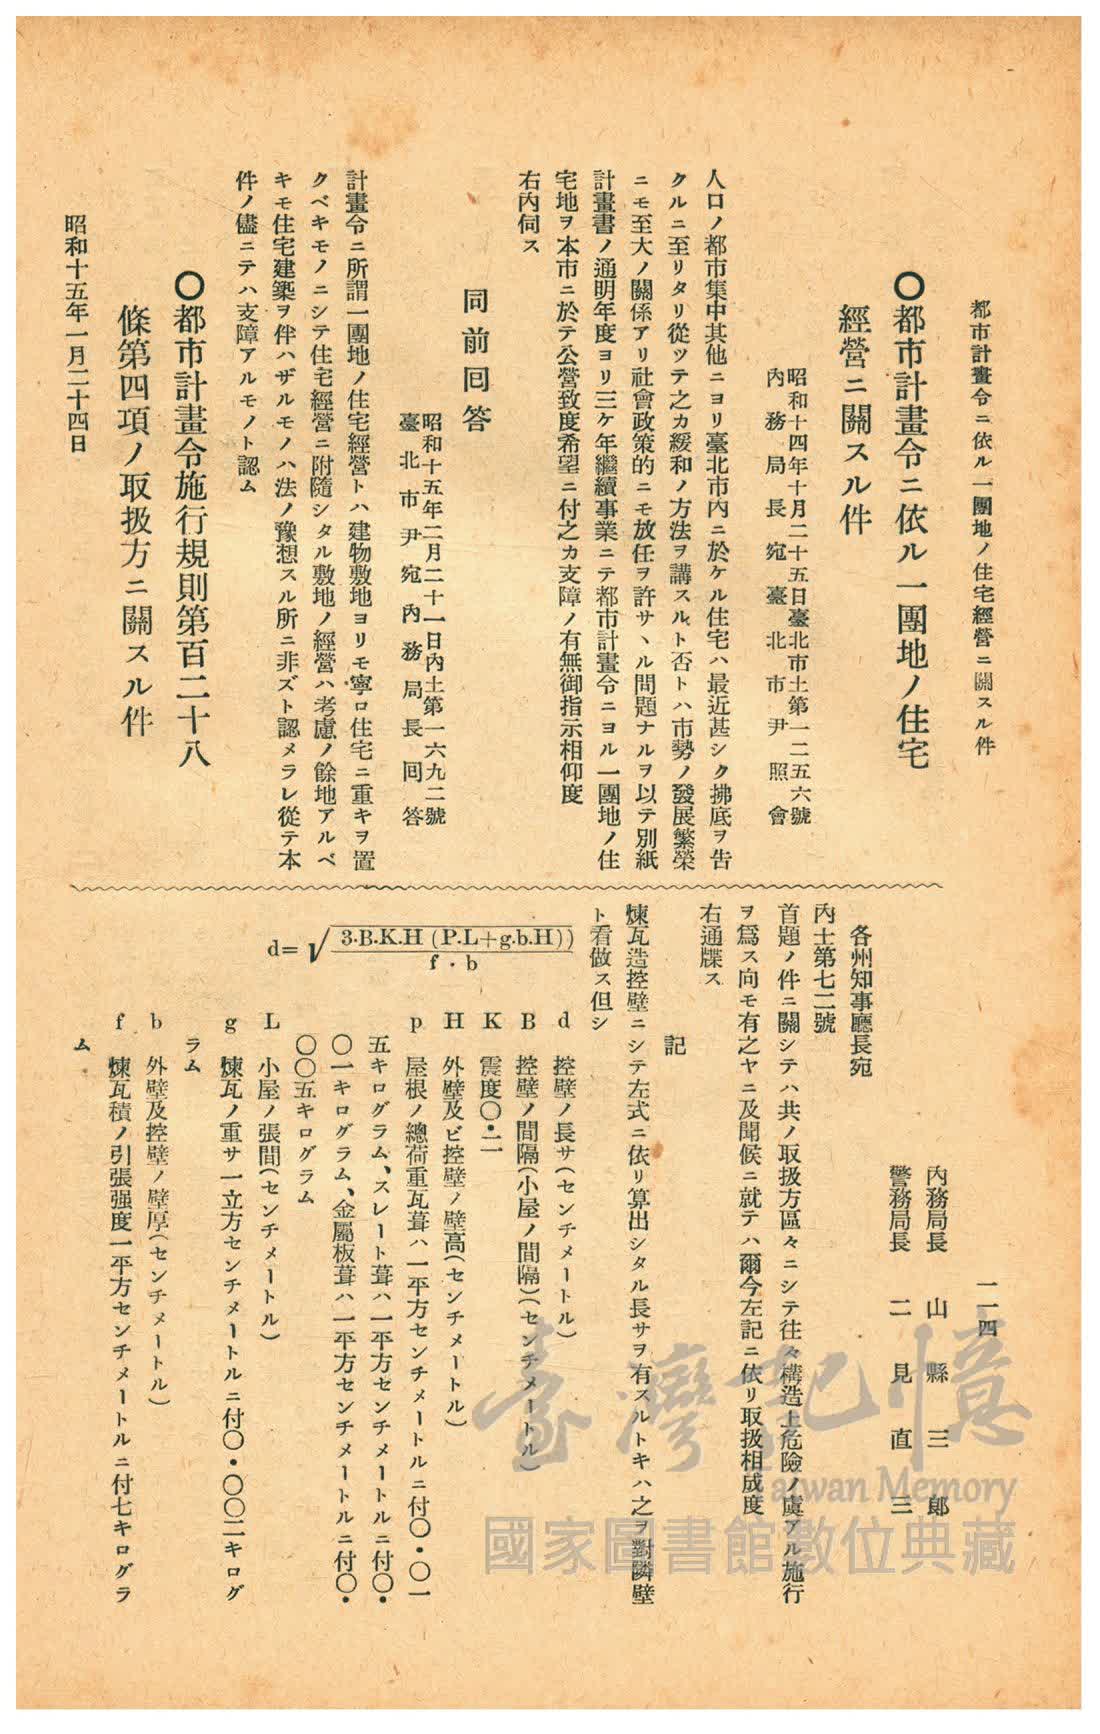 都市計畫令ニ依ル一團地ノ住宅經營ニ關スル件
一一四
〇都市計畫令ニ依ル一團地ノ住宅
經營ニ關スル件
昭和十四年十月二十五日臺北市土第一二五六號
內務局長宛臺北市尹照會
人口ノ都市集中其他ニヨリ臺北市內ニ於ケル住宅ハ最近甚シク拂底ヲ告
クルニ至リタリ從ツテ之カ緩和ノ方法ヲ講スルト否トハ市勢ノ發展繁榮
ニモ至大ノ關係アリ社會政策的ニモ放任ヲ許サヽル問題ナルヲ以テ別紙
計畫書ノ通明年度ヨリ三ケ年繼續事業ニテ都市計畫令ニヨル一團地ノ住
宅地ヲ本市ニ於テ公營致度希望ニ付之カ支障ノ有無御指示相仰度
右內伺ス
同前回答
昭和十五年二月二十一日內土第一六九二號
臺北市尹宛內務局長回答
計畫令ニ所謂一團地ノ住宅經營トハ建物敷地ヨリモ寧ロ住宅ニ重キヲ置
クベキモノニシテ住宅經營ニ附隨シタル敷地ノ經營ハ考慮ノ餘地アルベ
キモ住宅建築ヲ伴ハザルモノハ法ノ豫想スル所ニ非ズト認メラレ從テ本
件ノ儘ニテハ支障アルモノト認ム
〇都市計畫令施行規則第百二十八
條第四項ノ取扱方ニ關スル件
昭和十五年一月二十四日
內務局長 山縣三郞
警務局長 二見直三
各州知事廳長宛
內土第七二號
首題ノ件ニ關シテハ共ノ取扱方區々ニシテ往々構造上危險ノ虞アル施行
ヲ爲ス向モ有之ヤニ及聞候ニ就テハ爾今左記ニ依リ取扱相成度
右通牒ス
記
煉瓦造控壁ニシテ左式ニ依リ算出シタル長サヲ有スルトキハ之ヲ對隣壁
ト看做ス但シ
d=√3.B.K.H (P.L+g.b.H))
f . b
d 控壁ノ長サ(センチメートル)
B 控壁ノ間隔(小屋ノ間隔)(センチメートル)
K 震度〇・二
H 外壁及ビ控壁ノ壁高(センチメートル)
p 屋根ノ總荷重瓦葺ハ一平方センチメートルニ付〇・〇一
五キログラム、スレート葺ハ一平方センチメートルニ付〇・
〇一キログラム、金屬板葺ハ一平方センチメートルニ付〇・
〇〇五キログラム
L 小屋ノ張間(センチメートル)
g 煉瓦ノ重サ一立方センチメートルニ付〇・〇〇二キログ
ラム
b 外壁及控壁ノ壁厚(センチメートル)
f 煉瓦積ノ引張强度一平方センチメートルニ付七キログラ
ム
臺灣記憶
Taiwan Memory
國家圖書館數位典藏